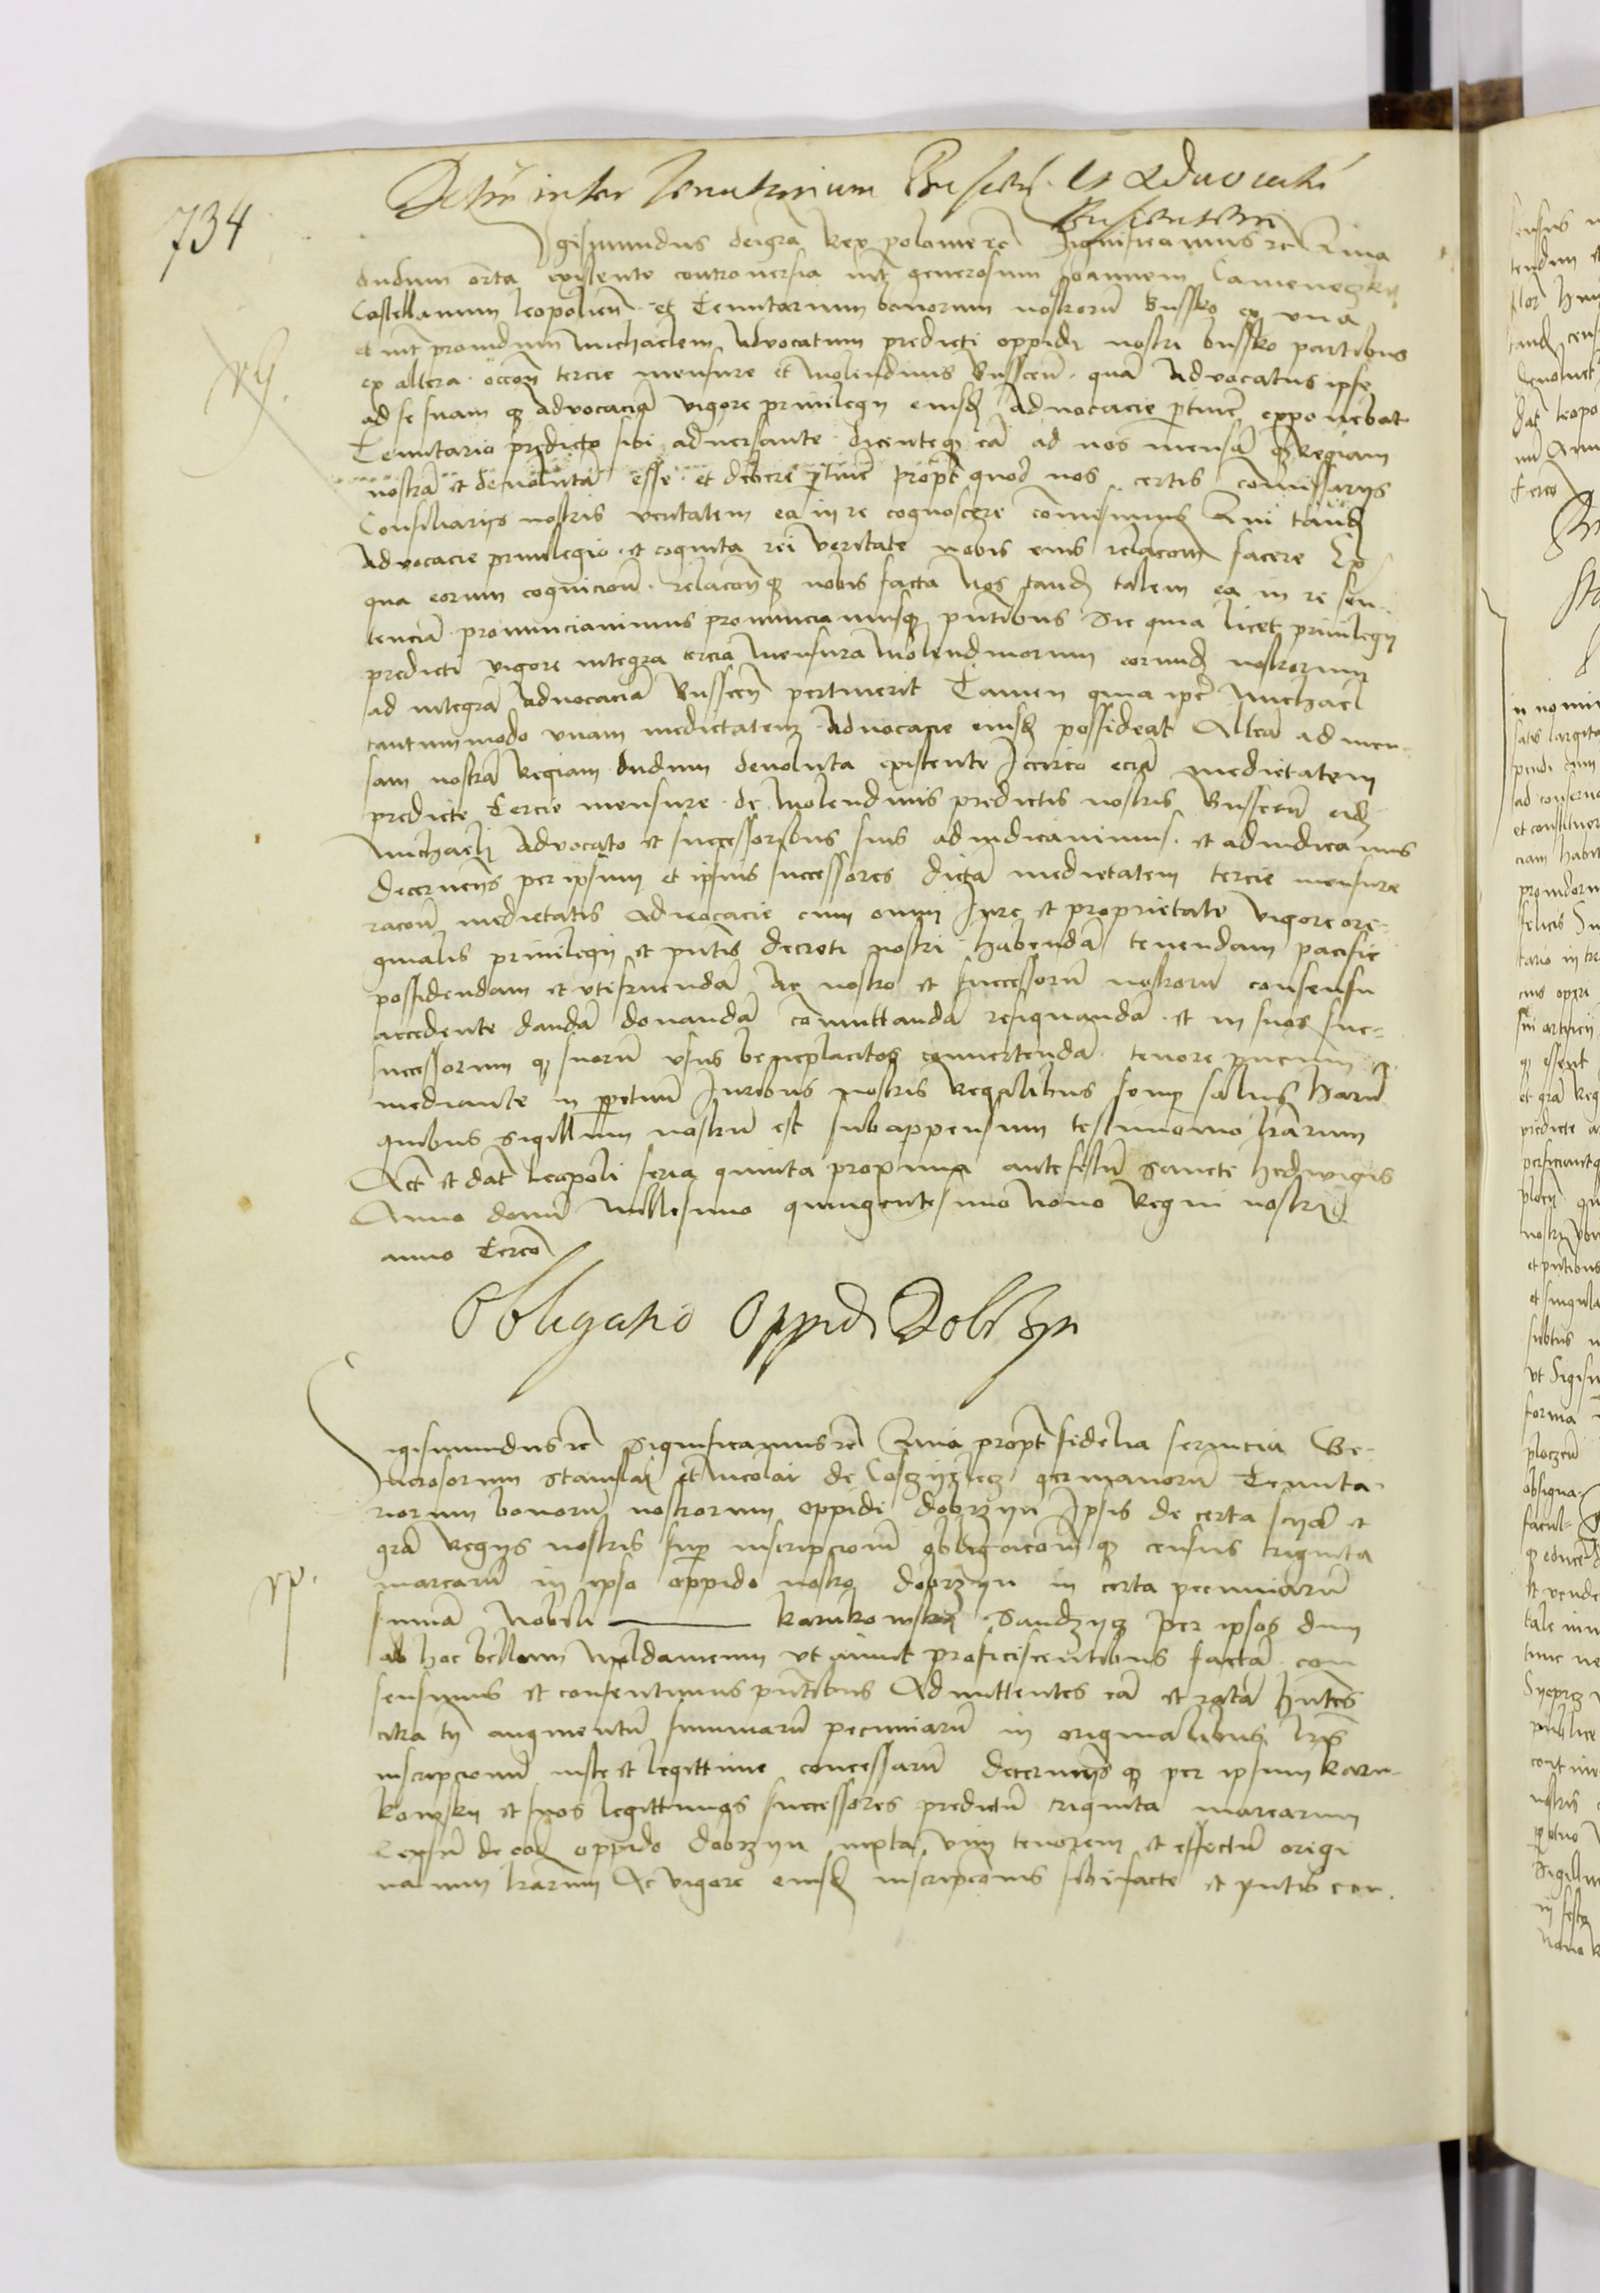 734
Decretum inter Tenutarium Buscens. et Advocatum
Buscensem
Sigismundus dei gra Rex polonie rc Significamus rc Quia
dudum orta existente controversia int generosum Joannem Cameneczky
Castellanum leopolien. et Tenutarium bonorum nostrorum Bussko ex una
et int providum Michaelem Advocatum predicti oppidi nostri bussko partibus
ex altera occoe tercie mensure et Molendinis Busscen. quam Advocatus ipse
ad se suam q advocaciam vigore privilegij eiusd advocacie ptinere exponebat
Tenutario predicto sibi adversante dicenteq eam ad nos mensam q Regiam
nostram et devolutam esse et debere ptinere propt quod nos certis comissarijs
Consiliarijs nostris veritatem ea in re cognoscere comisimus Qui tand
Advocacie privilegio et cognita rei veritate nobis eius relacom facere Ex
qua eorum cognicione relacioneq nobis facta Nos tand talem ea in re sen-
tenciam pronunciavimus pronunciamusq pntibus Sic quia licet privilegij
predicti vigore integra tercia Mensura Molendinorum eorund nostrorum
ad integram advocaciam Busscen pertinerit Tamen quia ipe Michael
tantummodo unam medietatem Advocacie eiusd possideat Altera ad men-
sam nostram Regiam dudum devoluta existente Iccirco eciam medietatem
predicte Tercie mensure de Molendinis predictis nostris Busscen eid
Michaeli Advocato et successoribus suis adiudicavimus et adiudicamus
Decernens per ipsum et ipsius successores dictam medietatem tercie mensure
racone medietatis Advocacie cum omni Jure et proprietate vigore ori-
ginalis privilegij et pntis decreti nostri habendam tenendam pacifice
possidendam et utifruendam Ac nostro et successorum nostrorum consensu
accedente dandam donandam comuttandam resignandam et in suos suc-
successorum q suorum usus beneplacitos convertendam tenore pncium
mediante in perpetuum Juribus nostris Regalibus semp salvis Harum
quibus sigillum nostrum est subappensum testimonio lrarum
Act et dat leopoli feria quinta proxima ante festum Sancte hedwigis
Anno domini Millesimo quingentesimo Nono Regni nostri
anno Tercio
Obligatio Oppidi Dobrzyn
Sigismundus rc Significamus rc Quia propt fidelia servicia Ge-
nerosorum Stanislai et Nicolai de Coszyelecz germanorum Tenuta-
riorum bonorum nostrorum oppidi dobrzyn Ipsis de certa scia et
gra Regijs nostris sup inscripcione obligacione q census triginta
marcarum in ipso oppido nostro dobrzyn in certa pecuniarum
summa Nobili karnkowsky Sandzycz per ipsos dum
ad hoc bellum Moldavicum ut aiunt proficiscentibus factam con
sensimus et consentimus pntibus Admittentes eam et ratam hntes
citra tn augmentum summarum pecuniarum in originalibus lris
inscripcionum iuste et legittime concessarum decernens q per ipsum karn-
kowsky et suos legittimos successores predictum triginta marcarum
Censum de eod oppido dobrzyn iuxta vim tenorem et effectum origi
nalium lrarum Ac vigore eiusd inscripcionis sibi facte et pntis con-